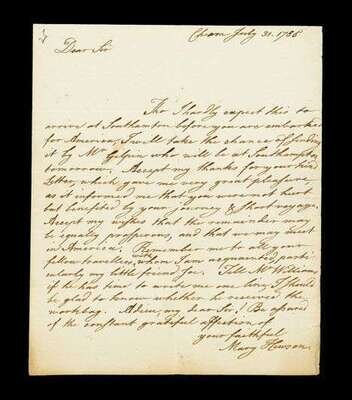 Cheam July 31. 1785
Dear Sir
Tho' I hardly expect this to
arrive at Southampton before you are embarked
for America, I will take the chance of sending
it by Mr Gilpin who will be at Southampton
tomorrow. Accept my thanks for your kind
Letter, which gave me very great pleasure
as it informed me that you were not hurt
but benefited by your journey & short voyage.
Accept my wishes that the remainder may
be equally prosperous, and that we may meet
in America. Remember me to all your
fellow travellers, with whom I am acquainted, parti-
cularly my little friend
Tell Mr Williams
if he has time to write me one line, I should
be glad to know whether he received the
workbag. Adieu, my dear Sir! Be assured
of the constant grateful affection of
your faithful
Mary Hewson